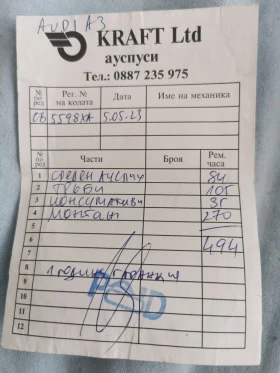 AUDI A3
KRAFT Ltd
ауспуси
Тел.: 0887 235 975
№ по ред Рег. № на колата Дата Име на механика
СВ 5598ХА 5.05.23
№ по ред Части Броя Рем. часа
1 СРЕДЕН АУСПУХ 84
2 ТРЪБИ 105
3 КОНСУМАТИВИ 35
4 МОНТАЖ 270
5
6 494
7
8 1 ГОДИНА ГАРАНЦИЯ
9
10
11
12